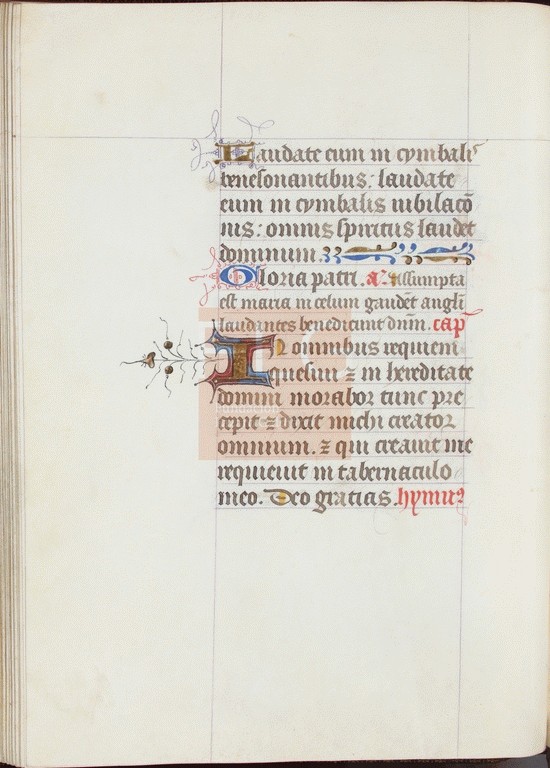 Laudate eum in cymbalis
benesonantibus: laudate
eum in cymbalis iubilacõ
nis: omnis spiritus laudet
dominum.
Gloria patri. a. Assumpta
est maria in celum gaudẽt angli
laudantes benedicunt dñm. cap
In omnibus requiem
quesiui ⁊ in hereditate
domini morabor tunc pre
cepit ⁊ dixit michi creator
omnium. ⁊ qui creauit me
requieuit in tabernaculo
meo. Deo gratias. hymnꝰ